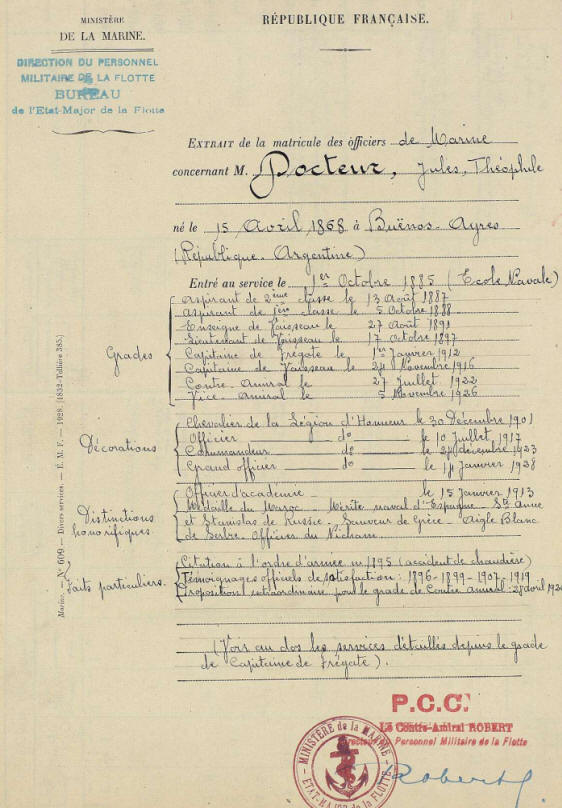 MINISTÈRE
DE LA MARINE.
RÉPUBLIQUE FRANÇAISE.
DIRECTION DU PERSONNEL
MILITAIRE DE LA FLOTTE
BUREAU
de l'Etat-Major de la Flotte
EXTRAIT de la matricule des officiers de Marine
concernant M. Docteur, Jules, Théophile
né le 15 Avril 1868 à Buënos-Ayres
(République Argentine)
Entré au service le 1er Octobre 1885 (Ecole Navale)
Grades
Aspirant de 2ème classe le 13 Août 1887
Aspirant de 1ère classe le 5 Octobre 1888
Enseigne de Vaisseau le 27 Août 1891
Lieutenant de Vaisseau le 17 octobre 1897
Capitaine de Frégate le 1er Janvier 1912
Capitaine de Vaisseau le 24 Novembre 1916
Contre-Amiral le 27 Juillet 1922
Vice-Amiral le 5 Novembre 1926
Décorations
Chevalier de la Légion d'Honneur le 30 Décembre 1901
Officier do le 10 Juillet 1917
Commandeur do le 24 décembre 1923
Grand officier do le 14 Janvier 1928
Distinctions honorifiques
Officier d'académie le 15 Janvier 1913
Médaille du Maroc - Mérite naval d'Espagne - Ste Anne
et Stanislas de Russie - Sauveur de Grèce - Aigle Blanc
de Serbie - Officier du Nicham
Faits particuliers
Citation à l'ordre d'armée en 1895 (accident de chaudière)
Témoignages officiels de satisfaction : 1896-1899-1907-1919
Proposition extraordinaire pour le grade de Contre Amiral : 28 avril
(Voir au dos les services détaillés depuis le grade
de Capitaine de Frégate).
Marine. — N° 609 — Divers services. — É. M. F. — 1928. [1832-Tellière 385.]
P.C.C.
Le Contre-Amiral ROBERT
Directeur du Personnel Militaire de la Flotte
MINISTÈRE de la MARINE
ETAT-MAJOR de la FLOTTE
Robert